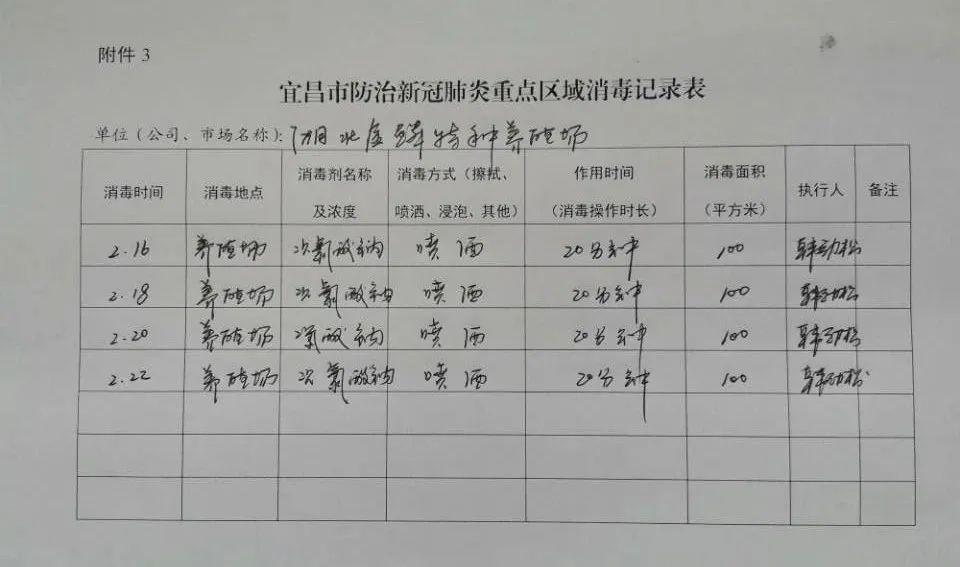 附件 3
宜昌市防治新冠肺炎重点区域消毒记录表
单位（公司、市场名称）：湖北金鳞特种养殖场
消毒时间 消毒地点 消毒剂名称及浓度 消毒方式（擦拭、喷洒、浸泡、其他） 作用时间（消毒操作时长） 消毒面积（平方米） 执行人 备注
2.16 养殖场 次氯酸钠 喷洒 20分钟 100 韩劲松
2.18 养殖场 次氯酸钠 喷洒 20分钟 100 韩劲松
2.20 养殖场 次氯酸钠 喷洒 20分钟 100 韩劲松
2.22 养殖场 次氯酸钠 喷洒 20分钟 100 韩劲松